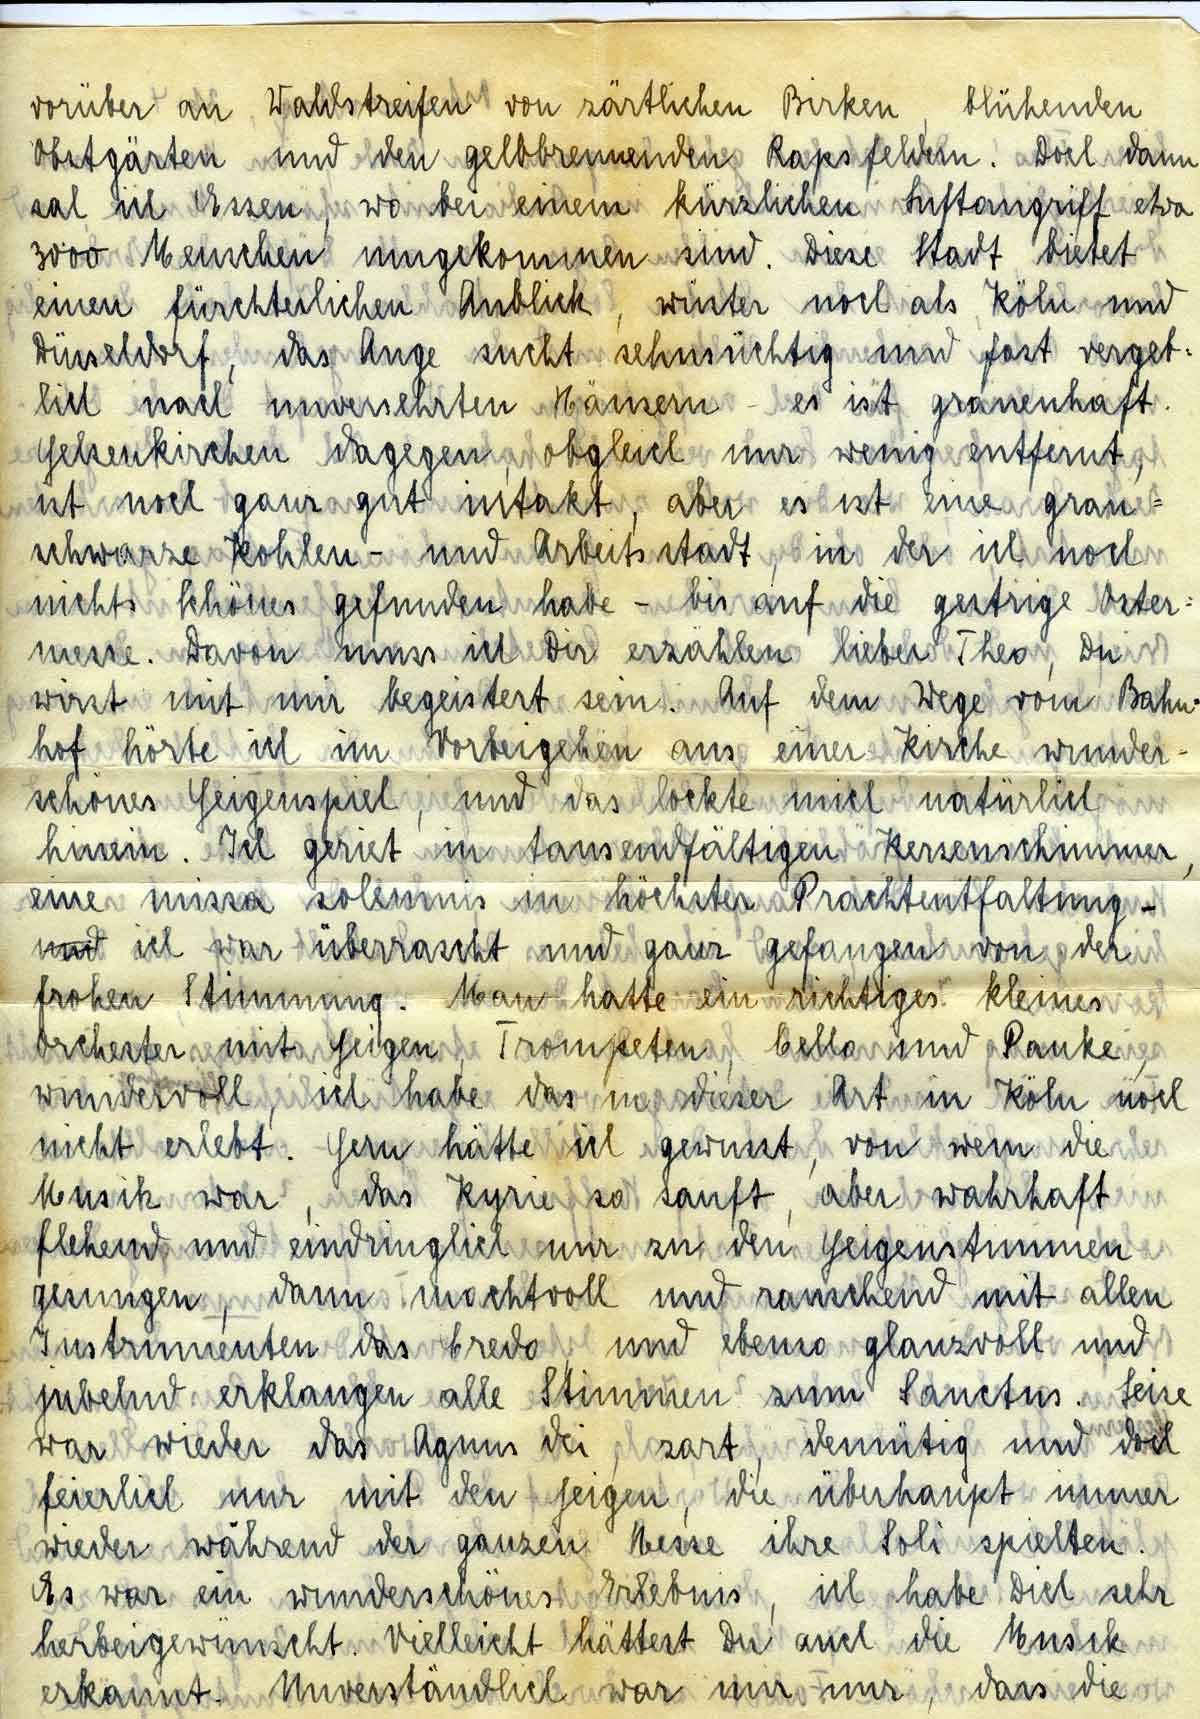 vorüber an Waldstreifen von zärtlichen Birken, blühenden
Obstgärten und den gelbbrennenden Rapsfeldern. Doch dann
sah ich Essen, wo bei einem kürzlichen Luftangriff etwa
3000 Menschen umgekommen sind. Diese Stadt bietet
einen fürchterlichen Anblick, wüster noch als Köln und
Düsseldorf, das Auge sucht sehnsüchtig und fast vergeb=
lich nach unversehrten Häusern - es ist grauenhaft.
Gelsenkirchen dagegen, obgleich nur wenig entfernt,
ist noch ganz gut intakt, aber es ist eine grau=
schwarze Kohlen- und Arbeitsstadt, in der ich noch
nichts Schönes gefunden habe - bis auf die gestrige Oster=
messe. Davon muss ich Dir erzählen lieber Theo, Du
wirst mit mir begeistert sein. Auf dem Wege vom Bahn-
hof hörte ich im Vorbeigehen aus einer Kirche wunder-
schönes Geigenspiel, und das lockte mich natürlich
hinein. Ich geriet in tausendfältigen Kerzenschimmer,
eine missa solemnis in höchster Prachtentfaltung -
und ich war überrascht und ganz gefangen von der
frohen Stimmung. Man hatte ein richtiges kleines
Orchester mit Geigen, Trompeten, Cello und Pauke,
wundervoll, ich habe das in dieser Art in Köln noch
nicht erlebt. Gern hätte ich gewusst, von wem die
Musik war, das Kyrie so sanft, aber wahrhaft
flehend und eindringlich nur zu den Geigenstimmen
gesungen, dann machtvoll und rauschend mit allen
Instrumenten das Credo, und ebenso glanzvoll und
jubelnd erklangen alle Stimmen zum Sanctus. Leise
war wieder das Agnus dei, zart, demütig und doch
feierlich nur mit den Geigen, die überhaupt immer
wieder während der ganzen Messe ihre Soli spielten.
Es war ein wunderschönes Erlebnis, ich habe Dich sehr
herbeigewünscht. Vielleicht hättest Du auch die Musik
erkannt. Unverständlich war mir nur, dass die